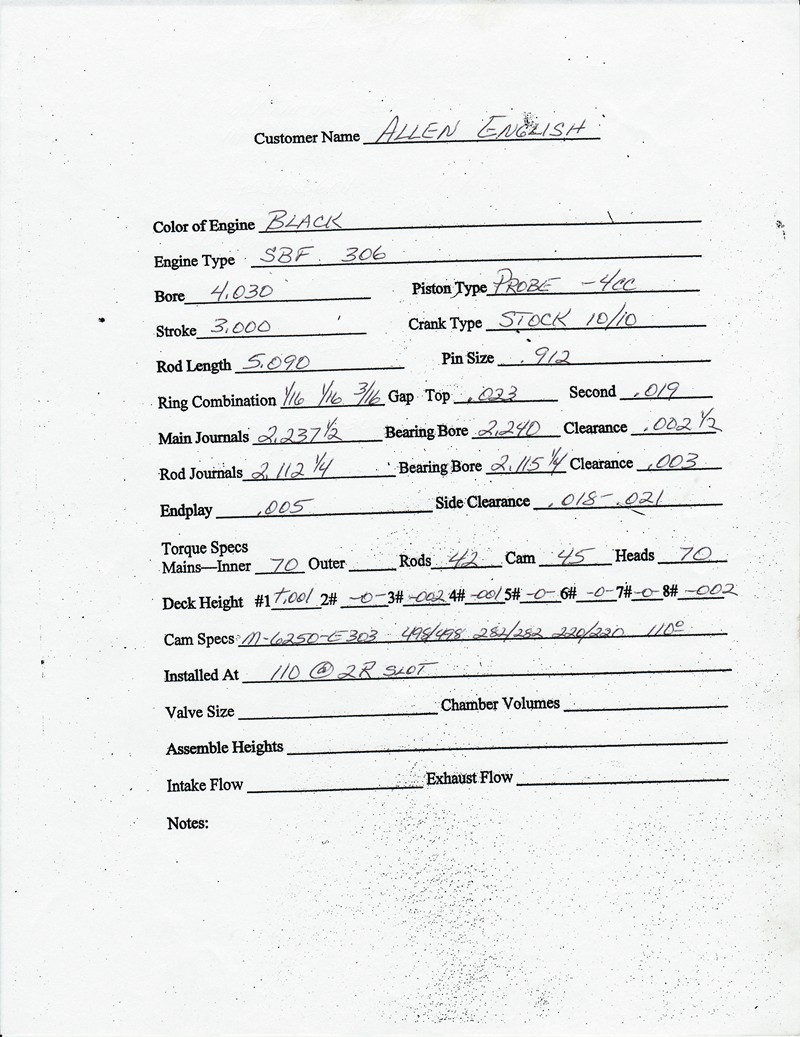 Customer Name ALLEN ENGLISH
Color of Engine BLACK
Engine Type SBF 306
Bore 4.030 Piston Type PROBE -4CC
Stroke 3.000 Crank Type STOCK 10/10
Rod Length 5.090 Pin Size .912
Ring Combination 1/16 1/16 3/16 Gap Top .023 Second .019
Main Journals 2.237 1/2 Bearing Bore 2.240 Clearance .002 1/2
Rod Journals 2.112 1/4 Bearing Bore 2.115 1/4 Clearance .003
Endplay .005 Side Clearance .018-.021
Torque Specs
Mains—Inner 70 Outer Rods 42 Cam 45 Heads 70
Deck Height #1 +.001 2# -0- 3# -002 4# -001 5# -0- 6# -0- 7# -0- 8# -002
Cam Specs M-6250-E303 498/498 282/282 220/220 110°
Installed At 110 @ 2R SLOT
Valve Size Chamber Volumes
Assemble Heights
Intake Flow Exhaust Flow
Notes: